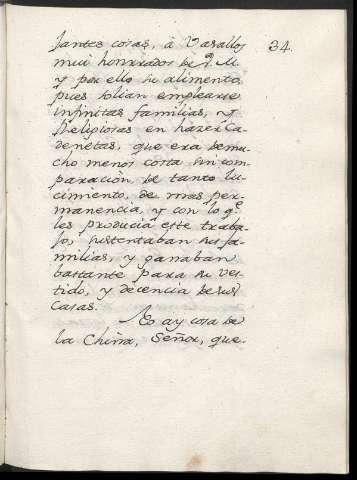 tantes cosas, â Vasallos 34.
mui honrrados de V. M
y por ello su alimento
pues solian emplearse
infinitas familias, y
Religiosas en hazer Ca
denetas, que era de mu
cho menos costa sin com
paración, de tanto lu
cimiento, de mas per
manencia, y con lo q.e
les producia este traba
jo, sustentaban sus fa
milias, y ganaban
bastante para su ves
tido, y decencia de sus
casas.
No ay cosa de
la China, Señor, que